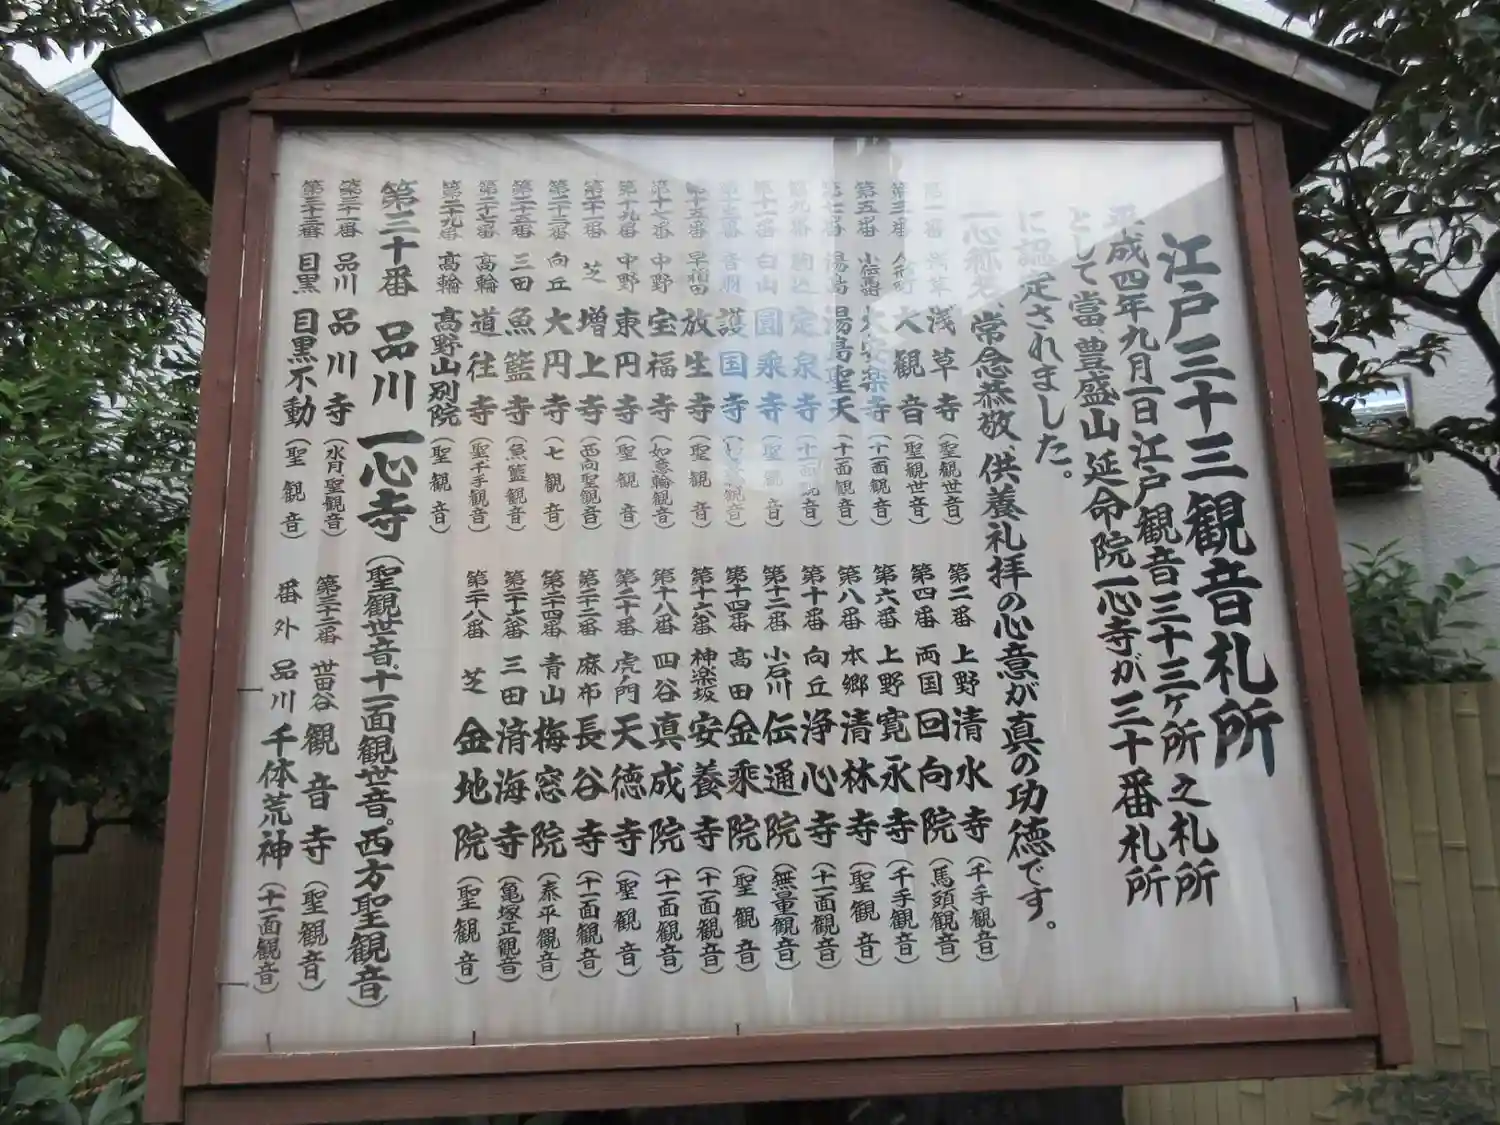 江戸三十三観音札所
平成四年九月一日江戸観音三十三ヶ所之札所
として當、豊盛山延命院一心寺が三十番札所
に認定されました。
一心称名、常念恭敬、供養礼拝の心意が真の功徳です。
第一番 浅草 浅草寺（聖観世音）
第二番 上野 清水寺（千手観音）
第三番 人形町 大観音（聖観世音）
第四番 両国 回向院（馬頭観音）
第五番 小伝馬町 大安楽寺（十一面観音）
第六番 上野 寛永寺（千手観音）
第七番 湯島 湯島聖天（十一面観音）
第八番 本郷 清林寺（聖観音）
第九番 駒込 定泉寺（十一面観音）
第十番 向丘 浄心寺（十一面観音）
第十一番 白山 圓乘寺（聖観音）
第十二番 小石川 伝通院（無量観音）
第十三番 音羽 護国寺（如意輪観音）
第十四番 高田 金乘院（聖観音）
第十五番 早稲田 放生寺（聖観音）
第十六番 神楽坂 安養寺（十一面観音）
第十七番 中野 宝福寺（如意輪観音）
第十八番 四谷 真成院（十一面観音）
第十九番 中野 東円寺（聖観音）
第二十番 虎ノ門 天徳寺（聖観音）
第二十一番 芝 増上寺（西向聖観音）
第二十二番 麻布 長谷寺（十一面観音）
第二十三番 向丘 大円寺（七観音）
第二十四番 青山 梅窓院（泰平観音）
第二十五番 三田 魚籃寺（魚籃観音）
第二十六番 三田 済海寺（亀塚正観音）
第二十七番 高輪 道往寺（聖千手観音）
第二十八番 芝 金地院（聖観音）
第二十九番 高輪 高野山別院（聖観音）
第三十番 品川 一心寺（聖観世音、十一面観世音。西方聖観音）
第三十一番 品川 品川寺（水月聖観音）
第三十二番 世田谷 観音寺（聖観音）
第三十三番 目黒 目黒不動（聖観音）
番外 品川 千体荒神（十一面観音）